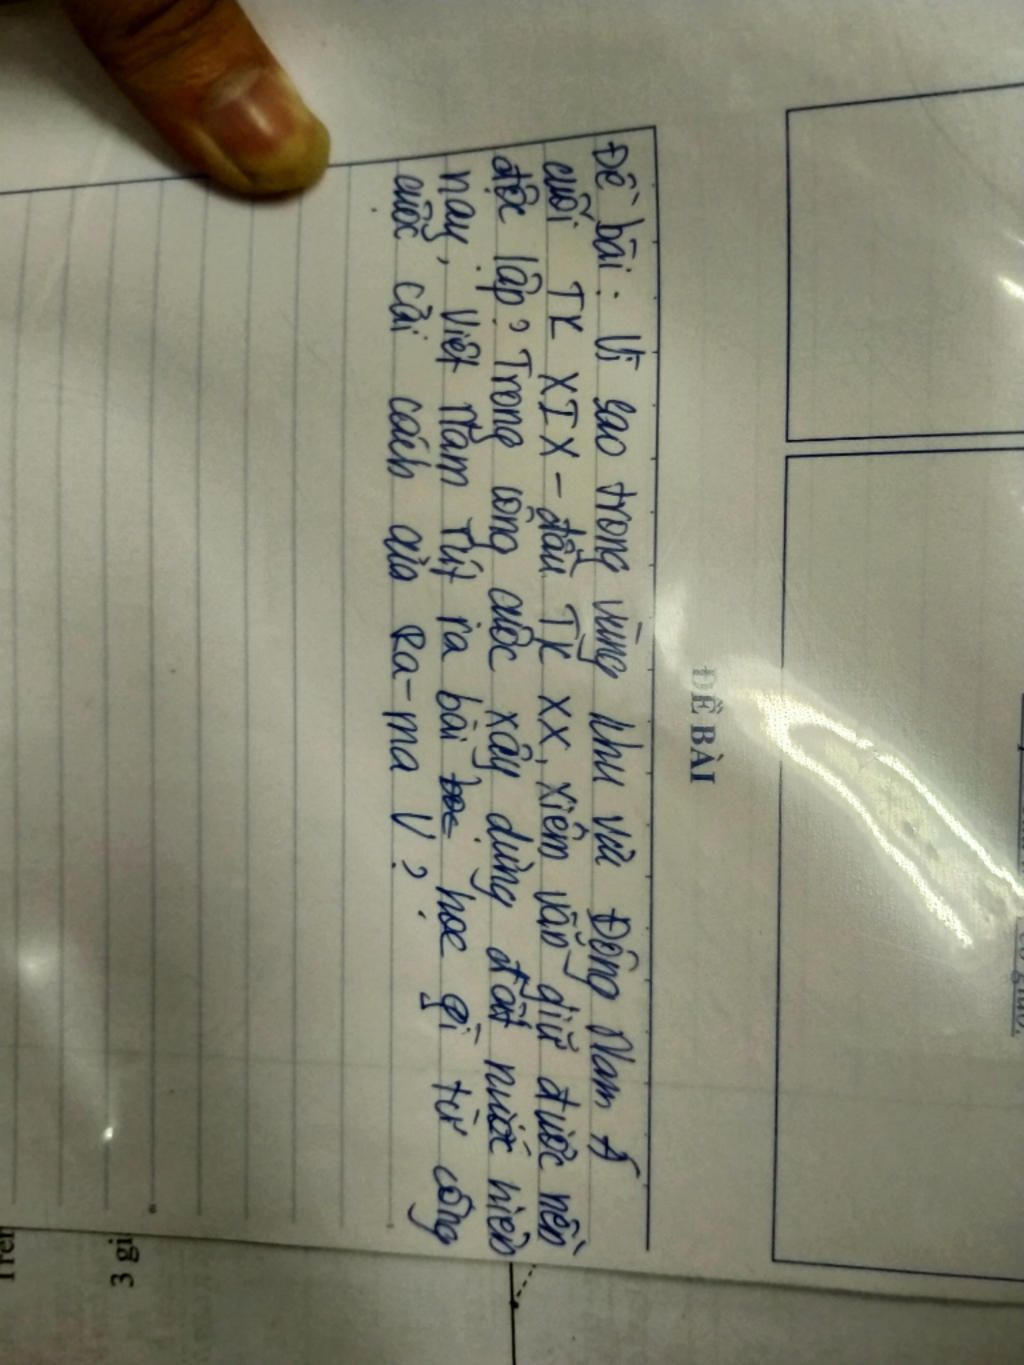 ĐỀ BÀI
Đề bài: Vì sao trong vùng khu vực Đông Nam Á
cuối TK XIX - đầu TK XX, Xiêm vẫn giữ được nền
độc lập? Trong công cuộc xây dựng đất nước hiện
nay, Việt Nam rút ra bài học gì từ công
cuộc cải cách của Ra-ma V?
3 gi